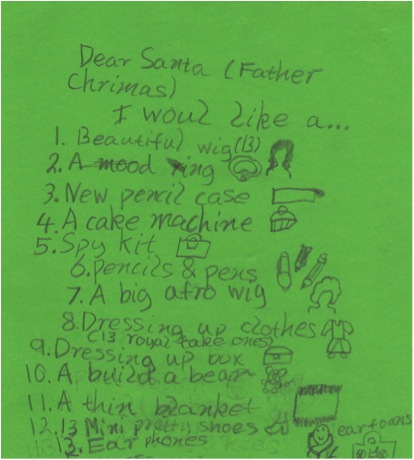 Dear Santa (Father
Chrimas)
I woul like a...
1. Beautiful wig(13)
2. A mood ring
3. New pencil case
4. A cake machine
5. Spy kit
6. pencils & pens
7. A big afro wig
8. Dressing up clothes
(13 royal take ones)
9. Dressing up box
10. A build a bear
11. A thin blanket
12. 13 Mini pretty shoes
13. Ear phones
eartoons